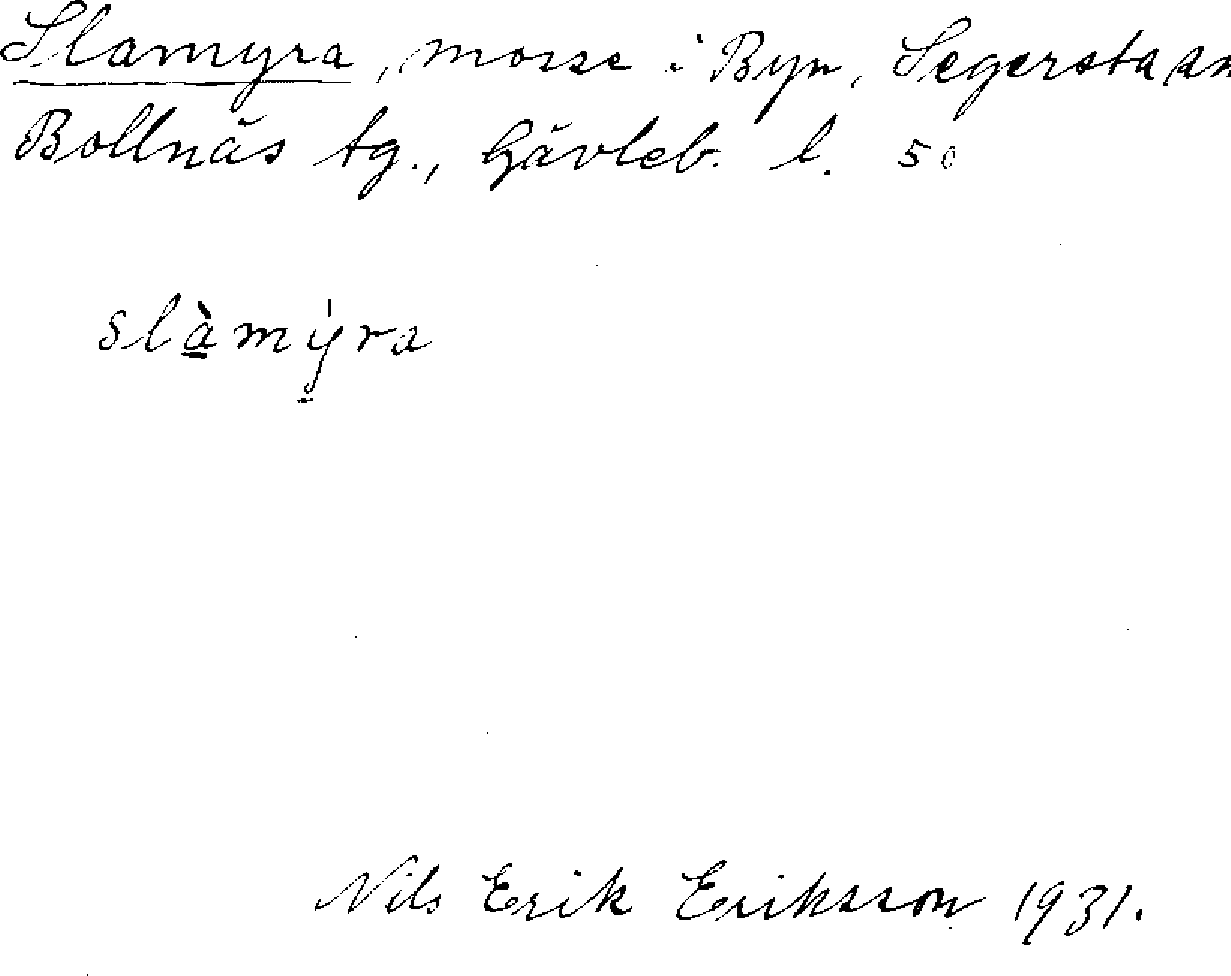 Slamyra, mosse i Byn, Segersta sn
Bollnäs tg., Gävleb. l. 50
slàmýra
Nils Erik Eriksson 1931.